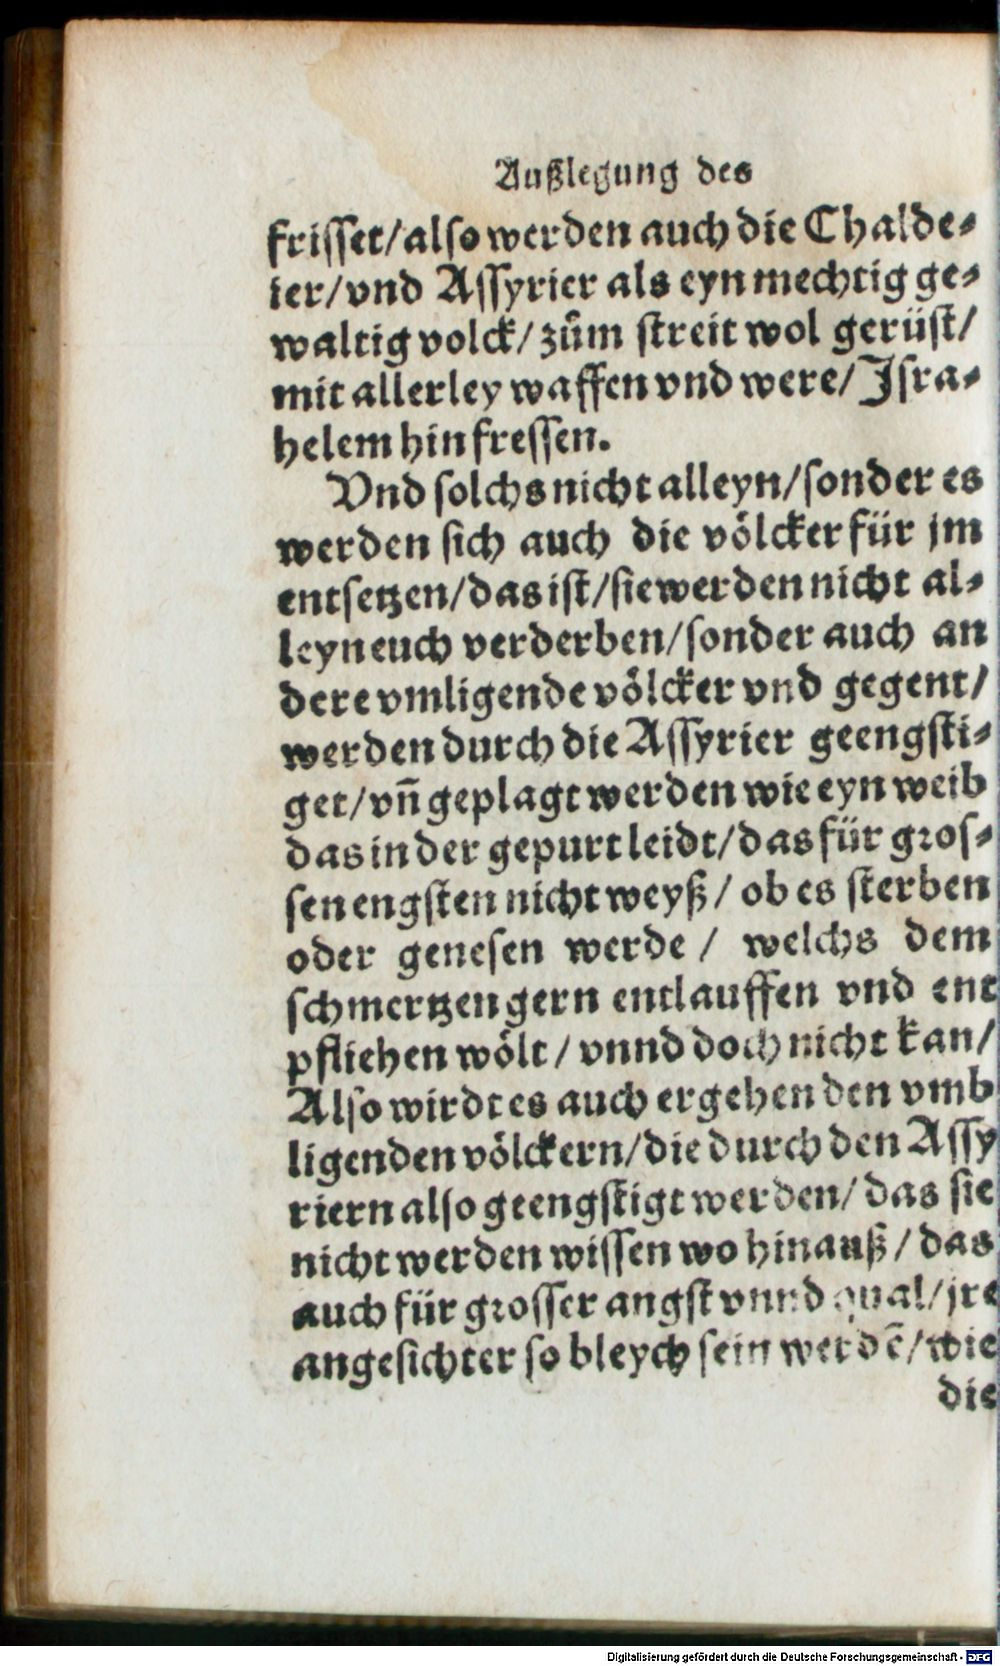 Außlegung des
frisset/also werden auch die Chalde⸗
ier/vnd Assyrier als eyn mechtig ge⸗
waltig volck/zům streit wol gerüst/
mit allerley waffen vnd were/Isra⸗
helem hin fressen.
Vnd solchs nicht alleyn/sonder es
werden sich auch die völcker für jm
entsetzen/das ist/sie werden nicht al⸗
leyn euch verderben/sonder auch an
dere vmligende völcker vnd gegent/
werden durch die Assyrier geengsti⸗
get/vñ geplagt werden wie eyn weib
das in der gepurt leidt/das für gros⸗
sen engsten nicht weyß/ob es sterben
oder genesen werde/welchs dem
schmertzen gern entlauffen vnd ent
pfliehen wölt/vnnd doch nicht kan/
Also wirdt es auch ergehen den vmb
ligenden völckern/die durch den Assy
riern also geengstigt werden/das sie
nicht werden wissen wo hinauß/das
auch für grosser angst vnnd qual/jre
angesichter so bleych sein werdē/wie
die
Digitalisierung gefördert durch die Deutsche Forschungsgemeinschaft - DFG